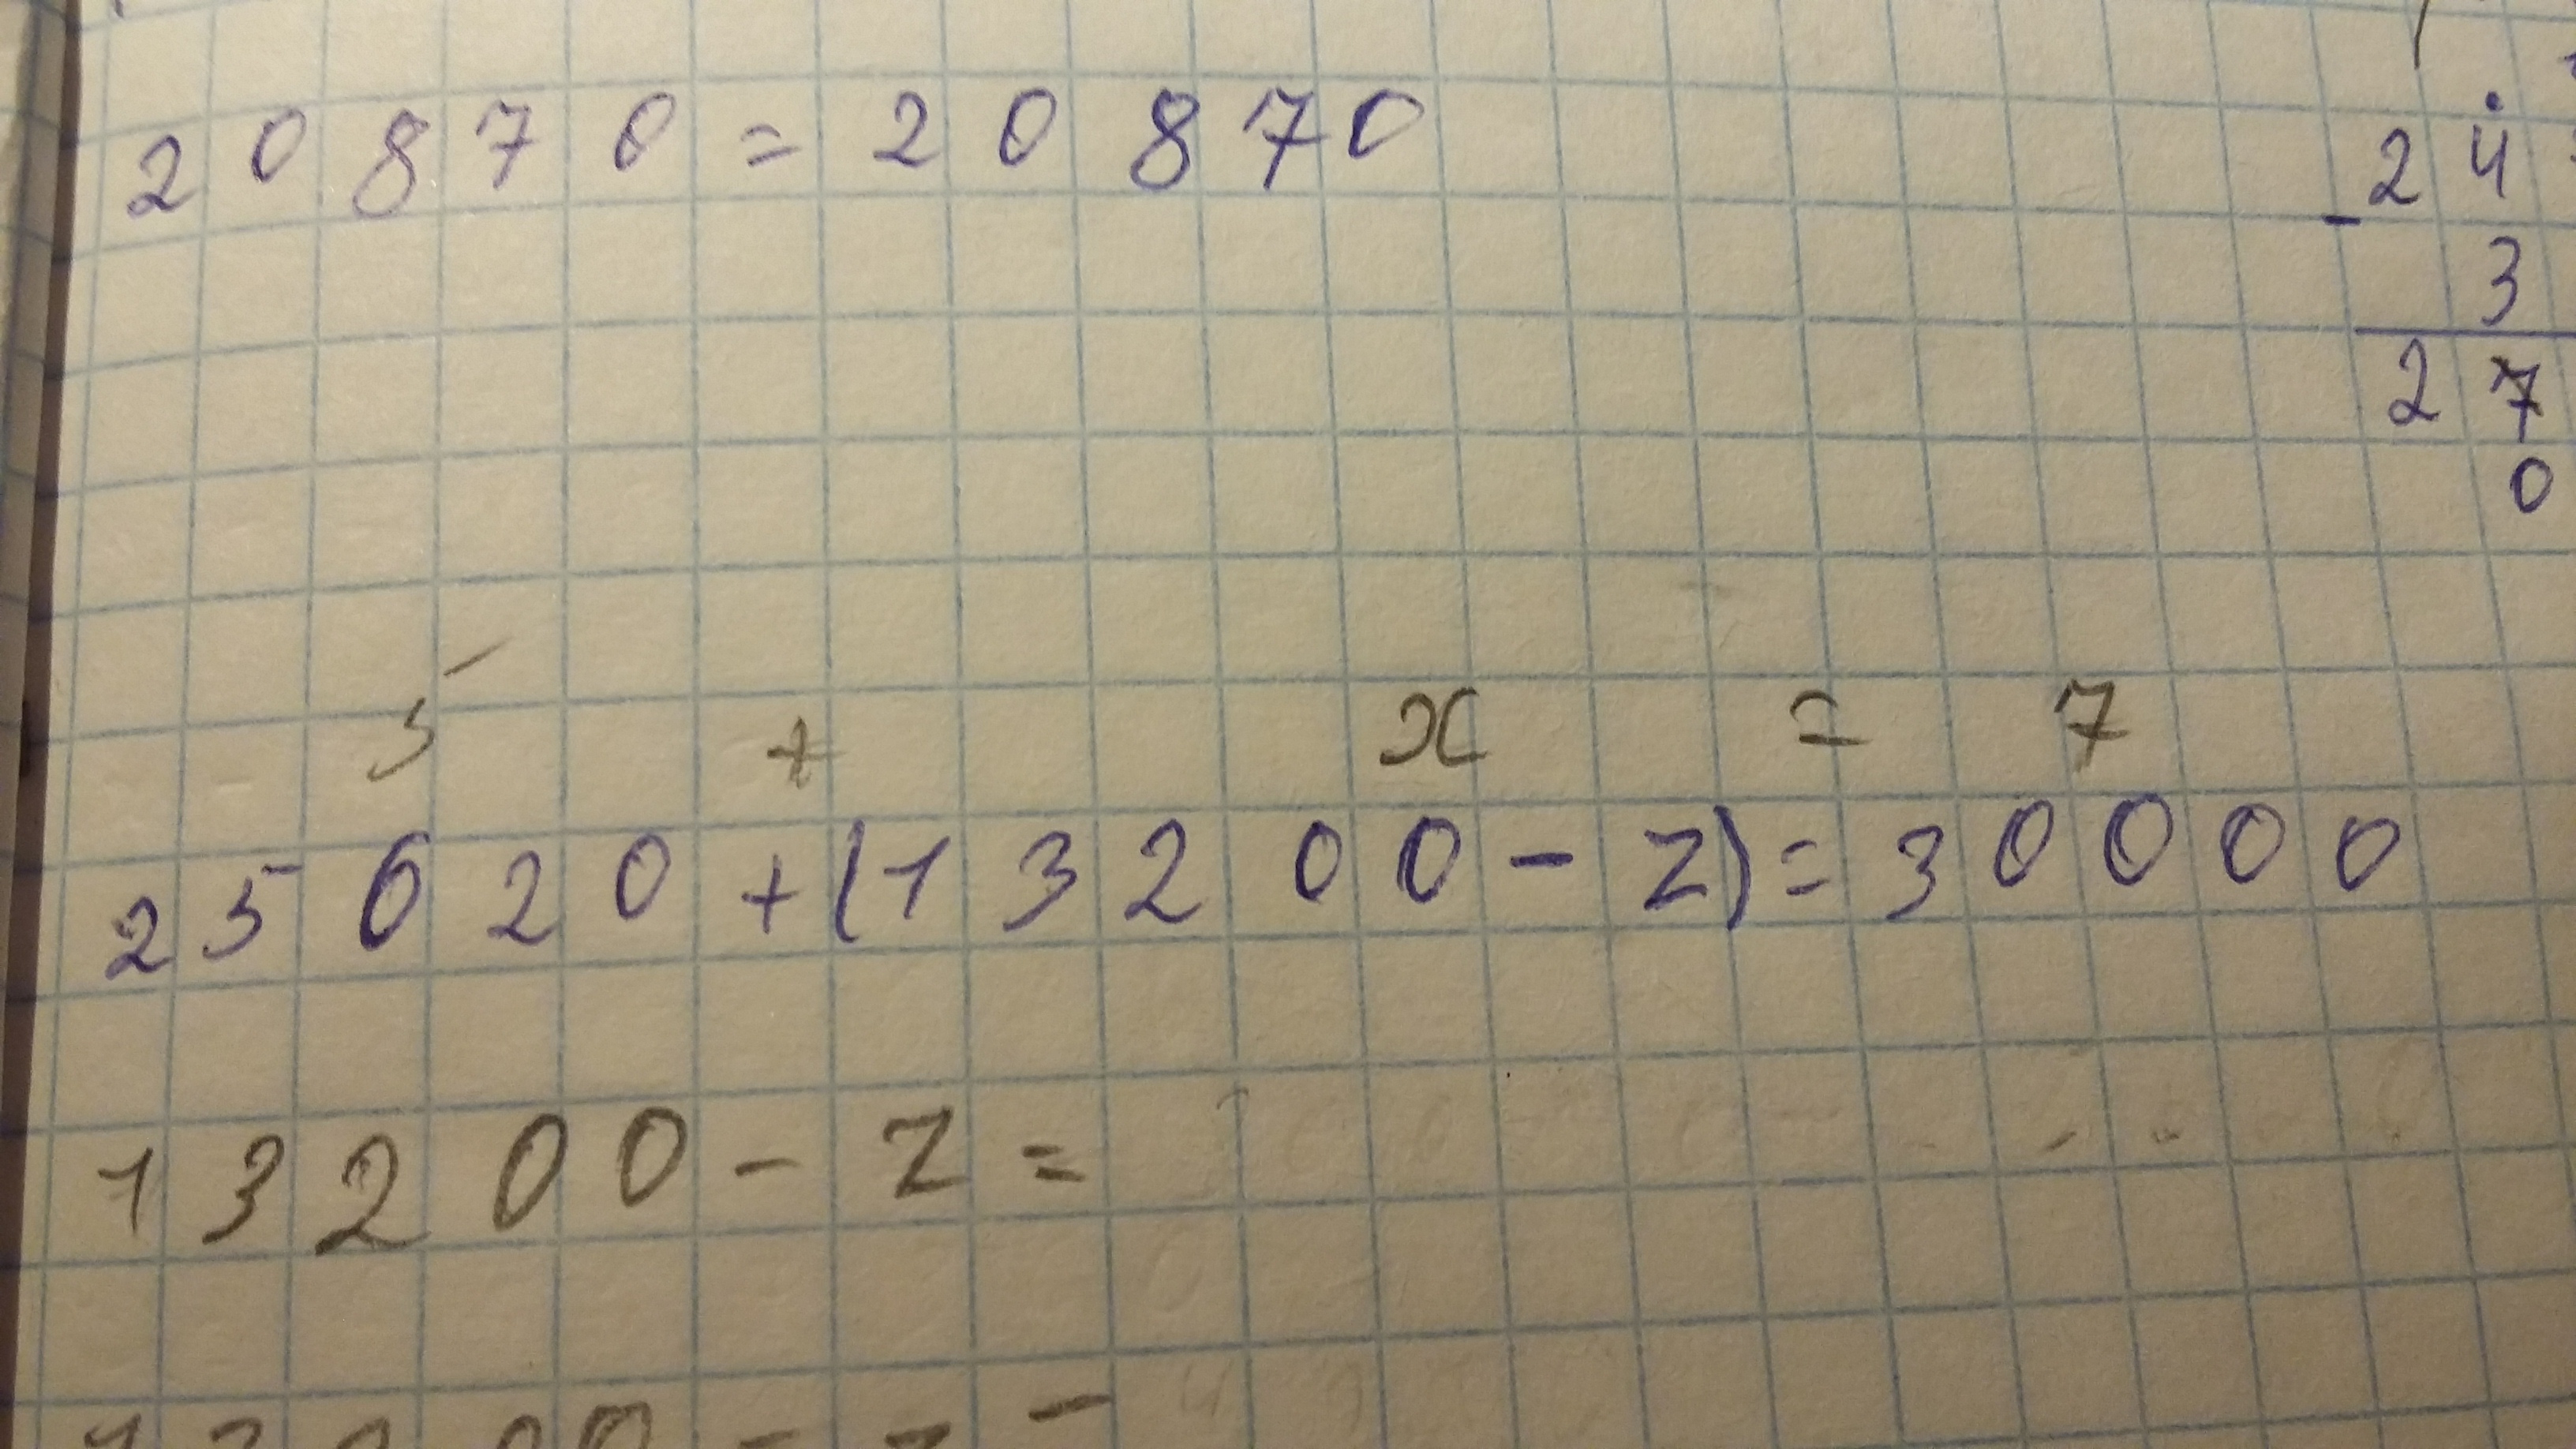 20870=20870
24
-
3
27
0
5 + x = 7
25620+(13200-z)=30000
13200-z=